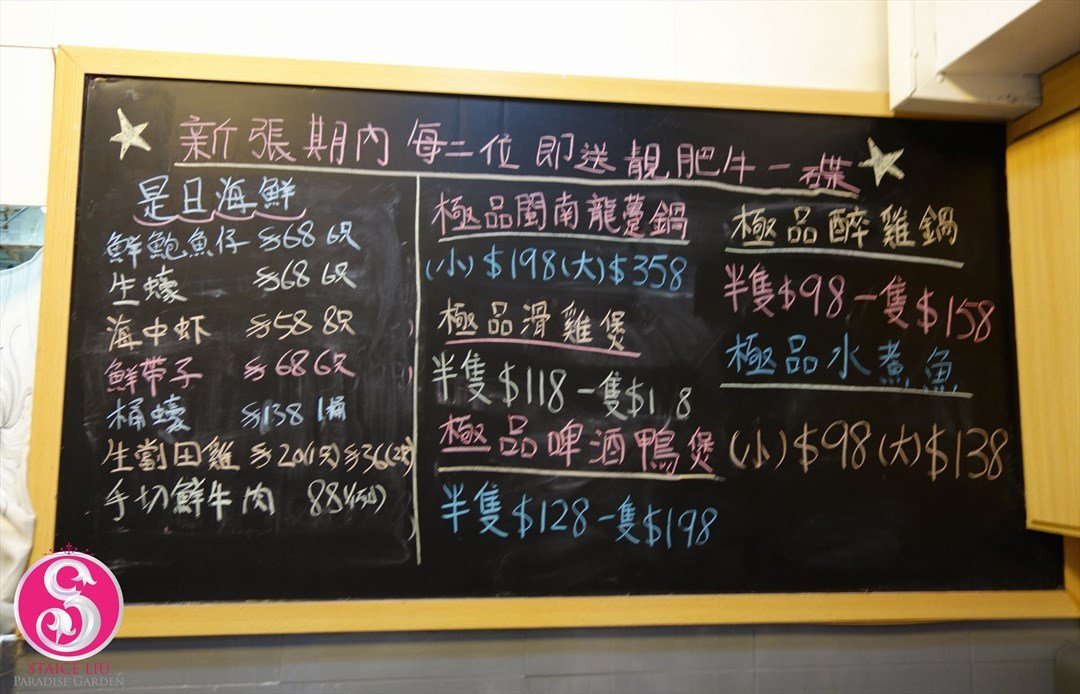 新張期內 每二位 即送靚肥牛一碟
是日海鮮
鮮鮑魚仔 $68 6只
生蠔 $68 6只
海中虾 $58 8只
鮮帶子 $68 6只
桶蠔 $138 1桶
生劏田雞 $20(1只) $36(2只)
手切鮮牛肉 88
極品閩南龍躉鍋
(小) $198 (大) $358
極品滑雞煲
半隻 $118 一隻 $1 8
極品啤酒鴨煲
半隻 $128 一隻 $198
極品醉雞鍋
半隻 $98 一隻 $158
極品水煮魚
(小) $98 (大) $138
S
STAICE LIU
PARADISE GARDEN